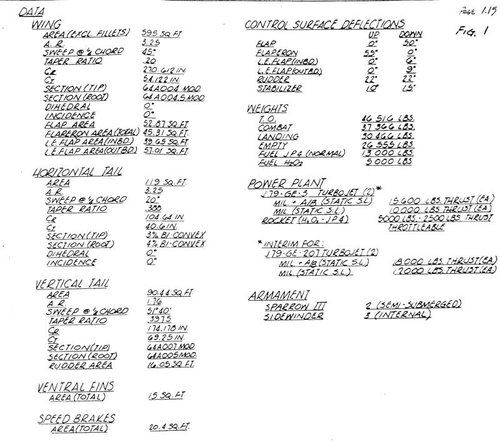 PAGE 1.15
FIG. 1
DATA
WING
AREA (EXCL. FILLETS) 595 SQ. FT
A. R. 3.25
SWEEP @ ¼ CHORD 45°
TAPER RATIO .20
CR 270.612 IN
CT 54.122 IN
SECTION (TIP) 64A004 MOD
SECTION (ROOT) 64A004.5 MOD
DIHEDRAL 0°
INCIDENCE 0°
FLAP AREA 52.87 SQ. FT
FLAPERON AREA (TOTAL) 45.31 SQ. FT
L.E. FLAP AREA (INBD) 39.65 SQ. FT
L.E. FLAP AREA (OUTBD) 57.01 SQ. FT
HORIZONTAL TAIL
AREA 119 SQ. FT
A. R. 3.25
SWEEP @ ¼ CHORD 20°
TAPER RATIO .388
CR 104.64 IN
CT 40.6 IN
SECTION (TIP) 3% BI-CONVEX
SECTION (ROOT) 4% BI-CONVEX
DIHEDRAL 0°
INCIDENCE 0°
VERTICAL TAIL
AREA 90.44 SQ. FT
A. R. 1.76
SWEEP @ ¼ CHORD 51°40'
TAPER RATIO .3975
CR 174.178 IN
CT 69.25 IN
SECTION (TIP) 64A007 MOD
SECTION (ROOT) 64A005 MOD
RUDDER AREA 16.05 SQ. FT
VENTRAL FINS
AREA (TOTAL) 15 SQ. FT
SPEED BRAKES
AREA (TOTAL) 20.4 SQ. FT
CONTROL SURFACE DEFLECTIONS
UP DOWN
FLAP 0° 50°
FLAPERON 55° 0°
L.E. FLAP (INBD) 0°
L.E. FLAP (OUTBD) 0°
RUDDER 22° 22°
STABILIZER 10° 15°
WEIGHTS
T. O. 46 516 LBS.
COMBAT 37 366 LBS.
LANDING 30 466 LBS.
EMPTY 26 555 LBS
FUEL JP4 (NORMAL) 13 000 LBS
FUEL H2O2 5 000 LBS
POWER PLANT
J79-GE-5 TURBOJET (2) *
MIL + A/B (STATIC S.L.) 15 600 LBS. THRUST (EA)
MIL (STATIC S.L) 10 000 LBS. THRUST (EA)
ROCKET (H2O2 - JP4) 5000 LBS - 2500 LBS THRUST
THROTTLEABLE
* INTERIM FOR:
J79-GE-207 TURBOJET (2)
MIL + A/B (STATIC S.L.) 18 000 LBS. THRUST (EA)
MIL (STATIC S.L.) 12000 LBS. THRUST (EA)
ARMAMENT
SPARROW III 2 (SEMI-SUBMERGED)
SIDEWINDER 3 (INTERNAL)